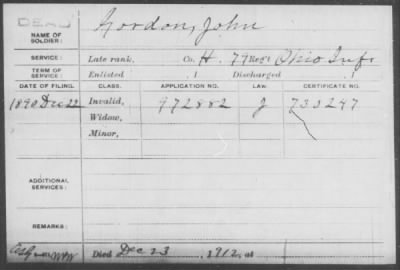 DEAD
NAME OF SOLDIER: Gordon, John
SERVICE: Late rank, Co. H. 79 Reg't Ohio Inf.
TERM OF SERVICE: Enlisted , 1 Discharged , 1
DATE OF FILING. CLASS. APPLICATION NO. LAW. CERTIFICATE NO.
1890 Dec 22 Invalid, 972882 J 733247
Widow,
Minor,
ADDITIONAL SERVICES:
REMARKS:
Died Dec 23, 1912, at